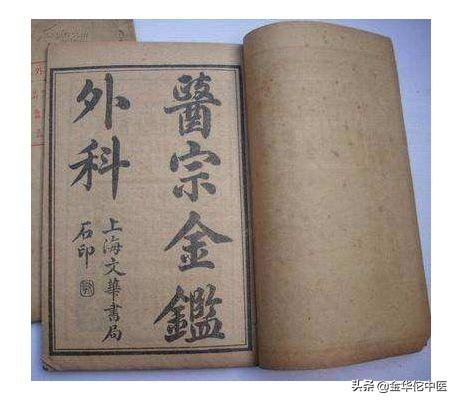 醫宗金鑑
外科
上海文華書局
石印
头条 @金华佗中医